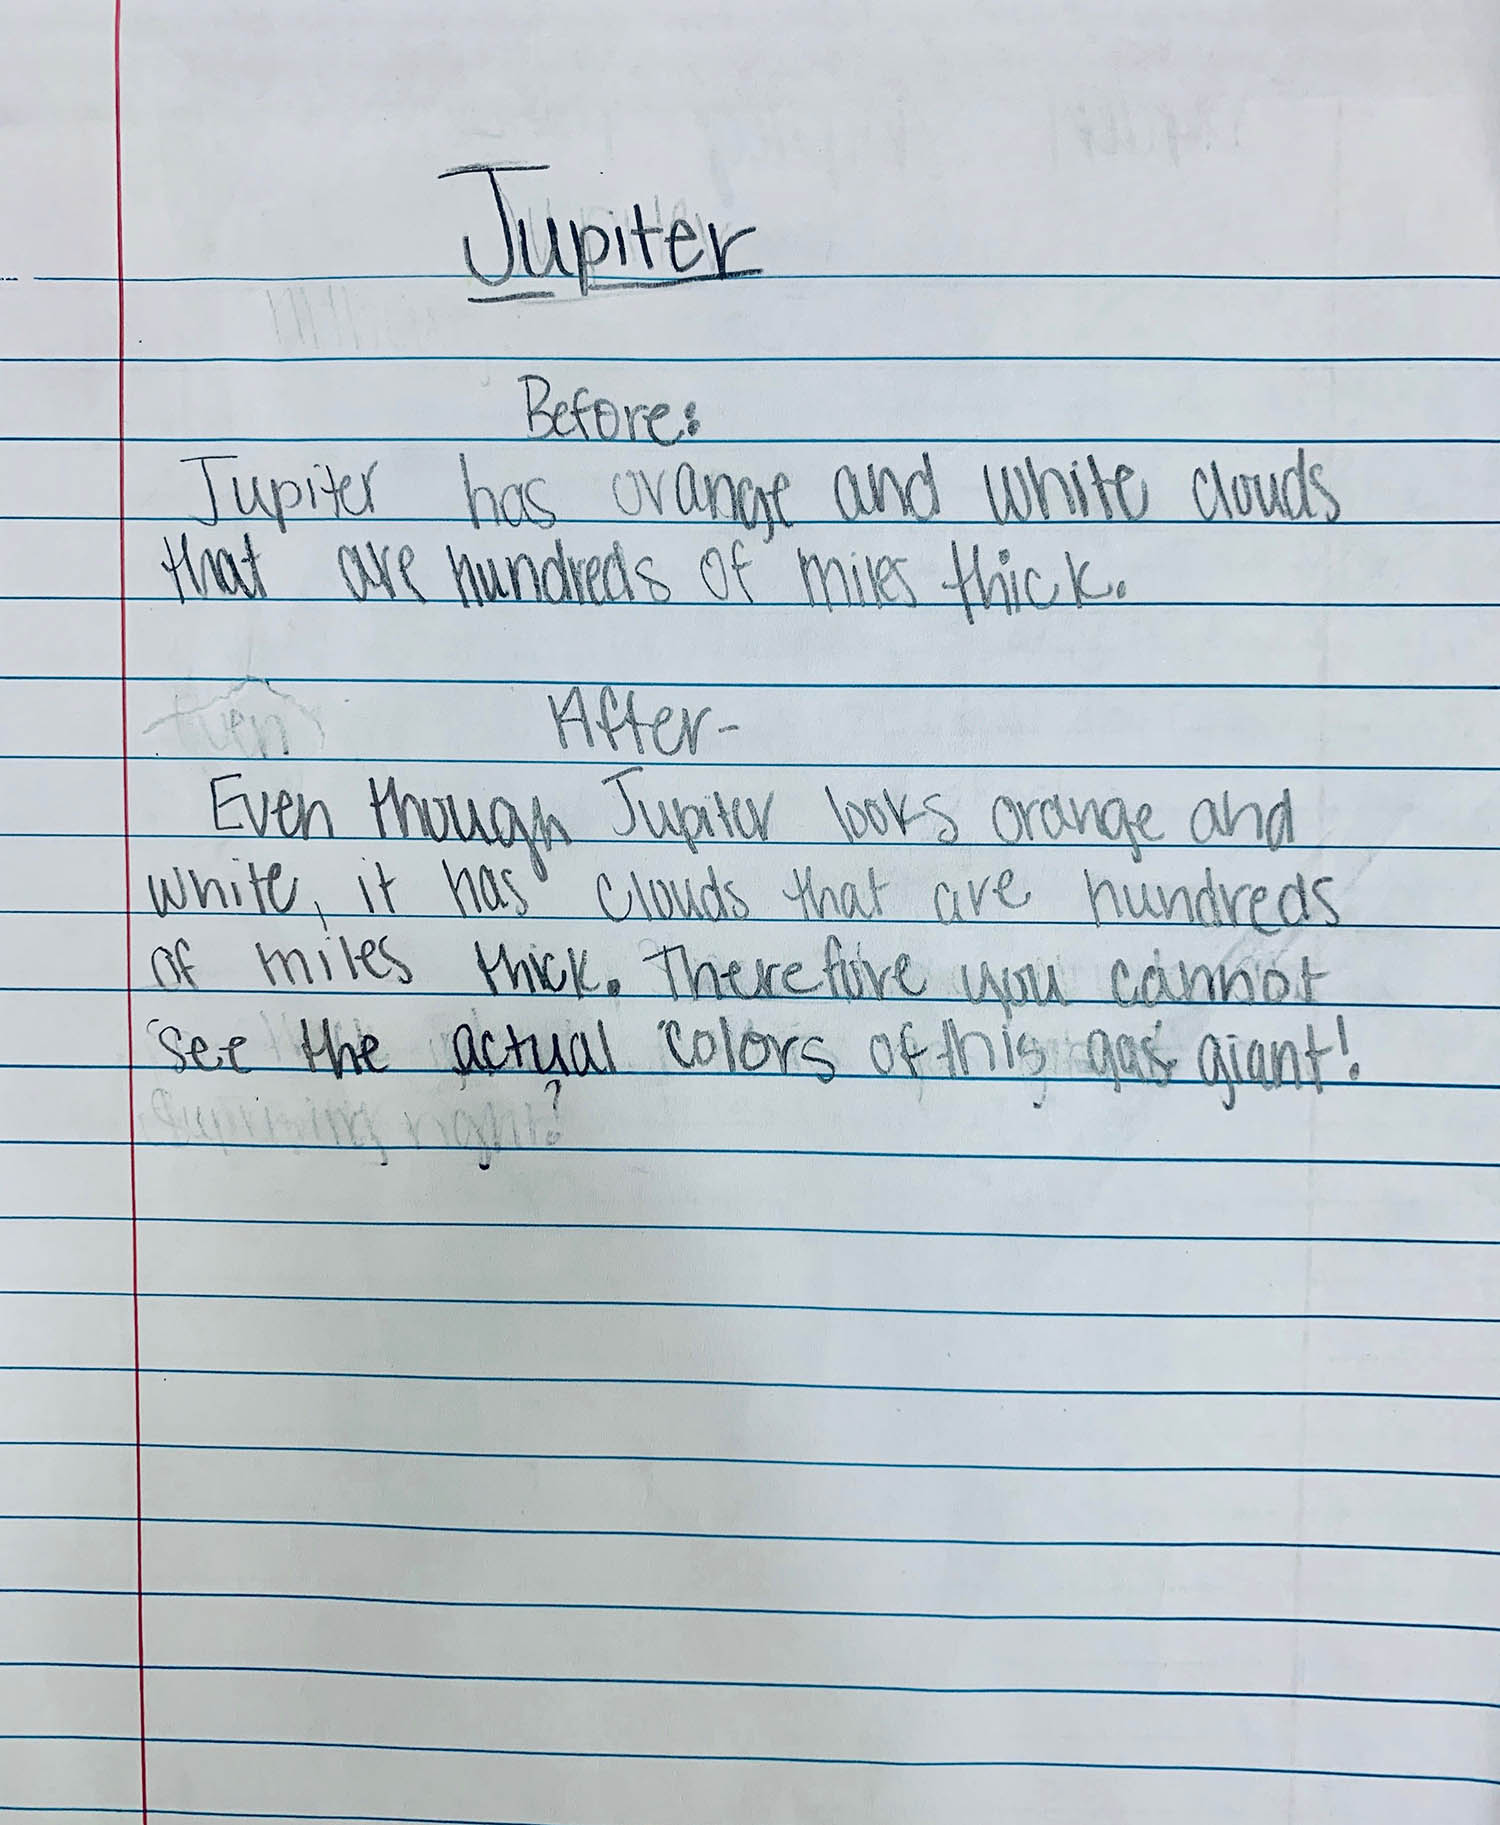 Jupiter
Before:
Jupiter has orange and white clouds
that are hundreds of miles thick.
After-
Even though Jupiter looks orange and
white, it has clouds that are hundreds
of miles thick. Therefore you cannot
see the actual colors of this gas giant!